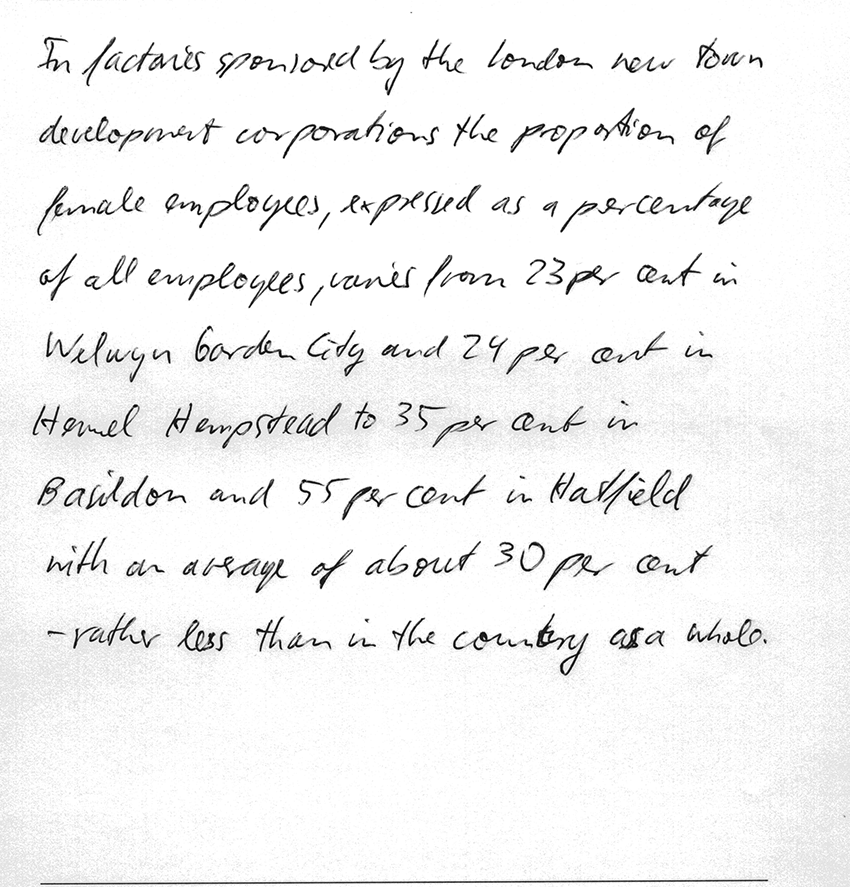 In factories sponsored by the London new town
development corporations the proportion of
female employees, expressed as a percentage
of all employees, varies from 23 per cent in
Welwyn Garden City and 24 per cent in
Hemel Hempstead to 35 per cent in
Basildon and 55 per cent in Hatfield
with an average of about 30 per cent
-rather less than in the country as a whole.